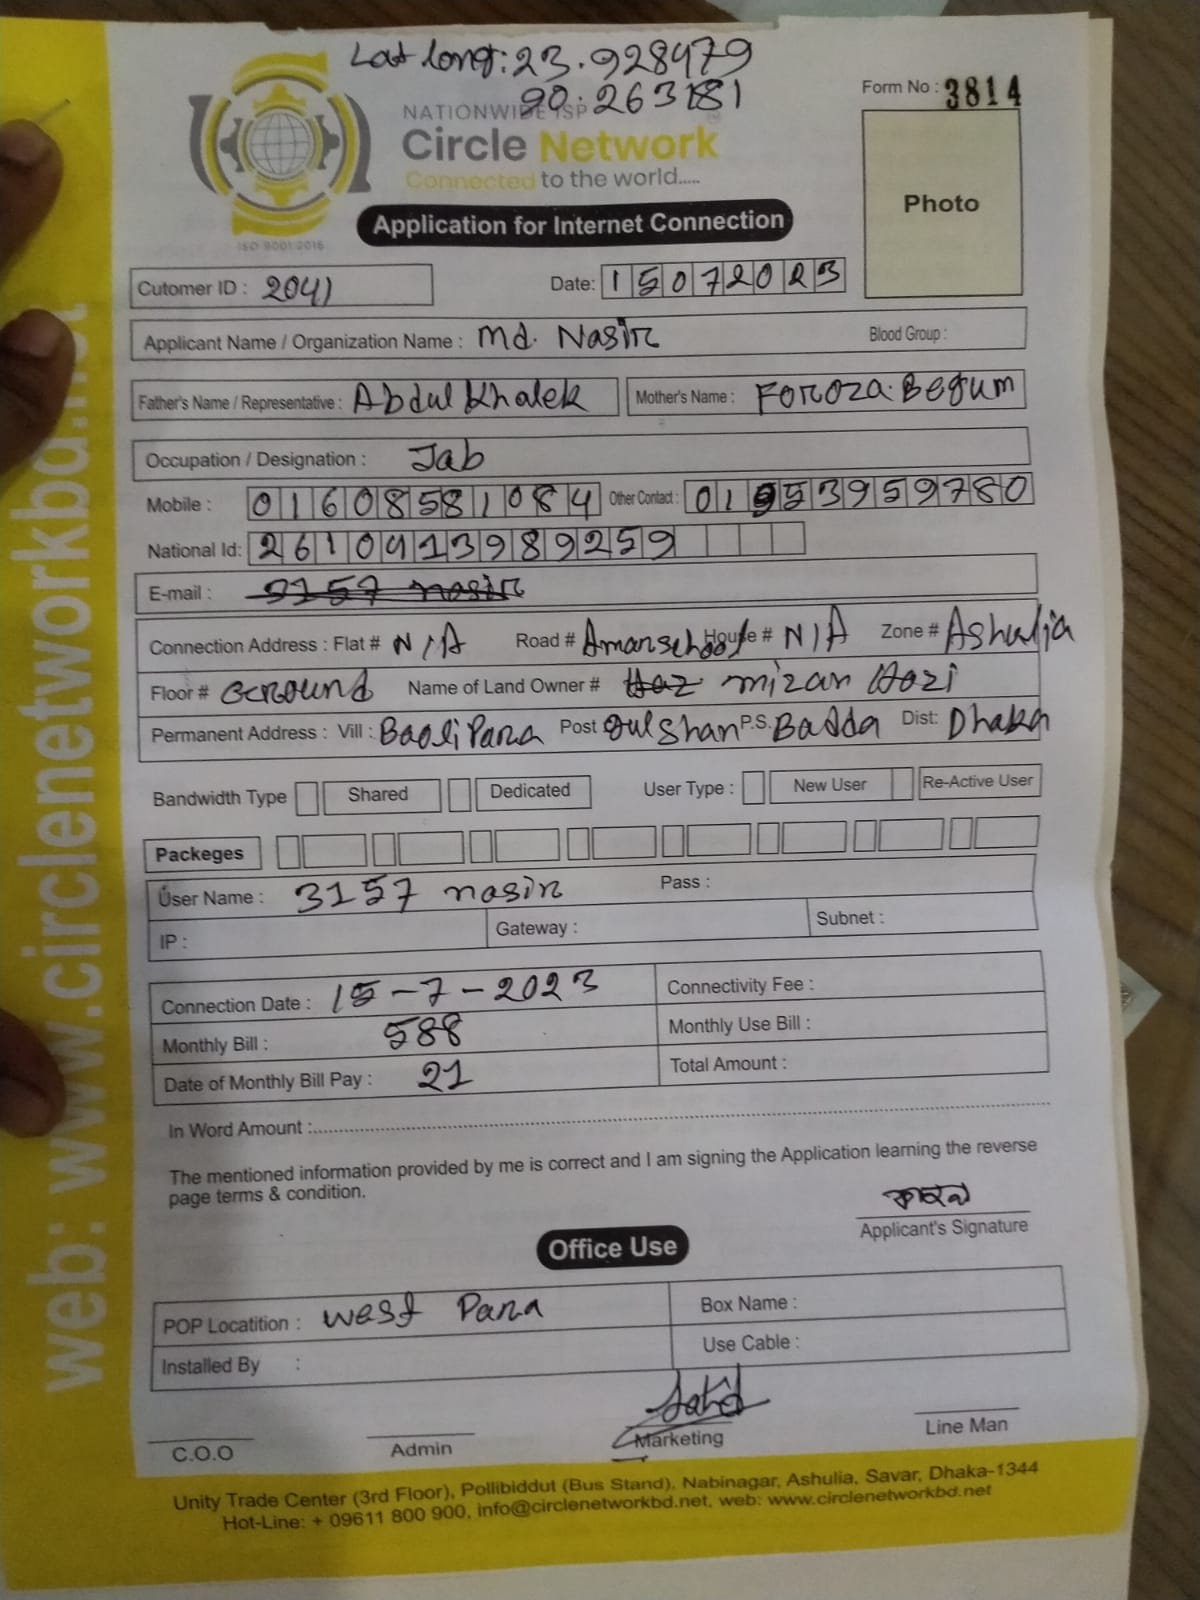 Lat long: 23.928479
90.263181
Form No : 3814
NATIONWIDE ISP
Circle Network
Connected to the world.....
ISO 9001:2015
Photo
Application for Internet Connection
Cutomer ID : 2041 Date: 15072023
Applicant Name / Organization Name : Md. Nasir Blood Group :
Father's Name / Representative : Abdul Khalek Mother's Name : Foroza Begum
Occupation / Designation : Jab
Mobile : 01608581084 Other Contact : 01953959780
National Id: 2610413989259
E-mail : 3157 nasir
Connection Address : Flat # N/A Road # Amanschool House # N/A Zone # Ashulia
Floor # Ground Name of Land Owner # Haz mizan Hozi
Permanent Address : Vill : Para Post Gulshan P.S. Badda Dist: Dhaka
Bandwidth Type Shared Dedicated User Type : New User Re-Active User
Packeges
User Name : 3157 nasir Pass :
IP : Gateway : Subnet :
Connection Date : 15-7-2023 Connectivity Fee :
Monthly Bill : 588 Monthly Use Bill :
Date of Monthly Bill Pay : 21 Total Amount :
In Word Amount :
The mentioned information provided by me is correct and I am signing the Application learning the reverse
page terms & condition.
Applicant's Signature
Office Use
POP Locatition : West Para Box Name :
Installed By : Use Cable :
C.O.O Admin Marketing Line Man
Unity Trade Center (3rd Floor), Pollibiddut (Bus Stand), Nabinagar, Ashulia, Savar, Dhaka-1344
Hot-Line: + 09611 800 900, info@circlenetworkbd.net, web: www.circlenetworkbd.net
web: www.circlenetworkbd.net